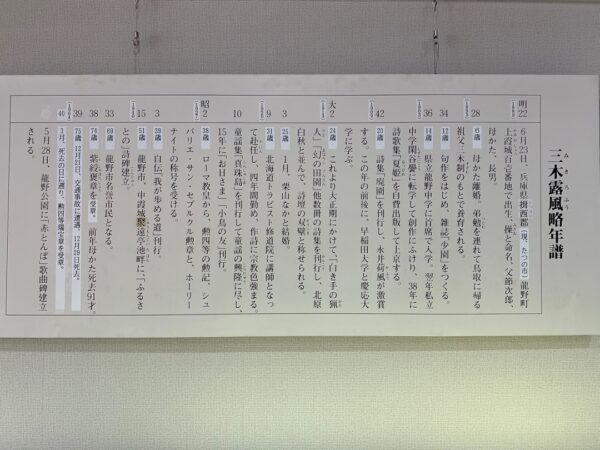 三木露風略年譜
みきろふう
明22 6月23日、兵庫県揖西郡(現、たつの市)龍野町
上霞城百壱番地で出生。操と命名、父節次郎、
母かた、長男。
28 6歳 母かた離婚。弟勉を連れて鳥取に帰る
祖父三木制のもとで養育される。
34 12歳 句作をはじめ、雑誌「少園」をつくる。
36 14歳 県立龍野中学に首席で入学、翌年私立
中学閑谷黌に転学して創作にふけり、38年に
詩歌集「夏姫」を自費出版して上京する。
42 20歳 詩集「廃園」を刊行し、永井荷風が激賞
する。この年の前後に、早稲田大学と慶応大
学に学ぶ。
大2 24歳 これより大正期にかけて、「白き手の猟
人」「幻の田園」他数冊の詩集を刊行し、北原
白秋と並んで、詩壇の双璧と称せられる。
3 25歳 1月、栗山なかと結婚。
9 31歳 北海道トラピスト修道院に講師となっ
て赴任し、四年間勤め、作詩に宗教色強まる。
10 童謡集「真珠島」を刊行して童謡の興隆に尽し、
15年に「お日さま」「小鳥の友」刊行。
昭2 38歳 ローマ教皇から、勲四等の勲記、シュ
バリエ・サン・セプルクル勲章と、ホーリー
ナイトの称号を受ける。
3 39歳 自伝「我が歩める道」刊行。
15 51歳 龍野市、中霞城聚遠亭池畔に、「ふるさ
との」詩碑建立。
33 69歳 龍野市名誉市民となる。
38 74歳 紫綬褒章を受章。前年母かた死去91才。
39 75歳 12月21日、交通事故に遭遇、12月29日死去。
40 1月、死去の日に遡り、勲四等瑞宝章を受章。
5月28日、龍野公園に「赤とんぼ」歌曲碑建立
される。